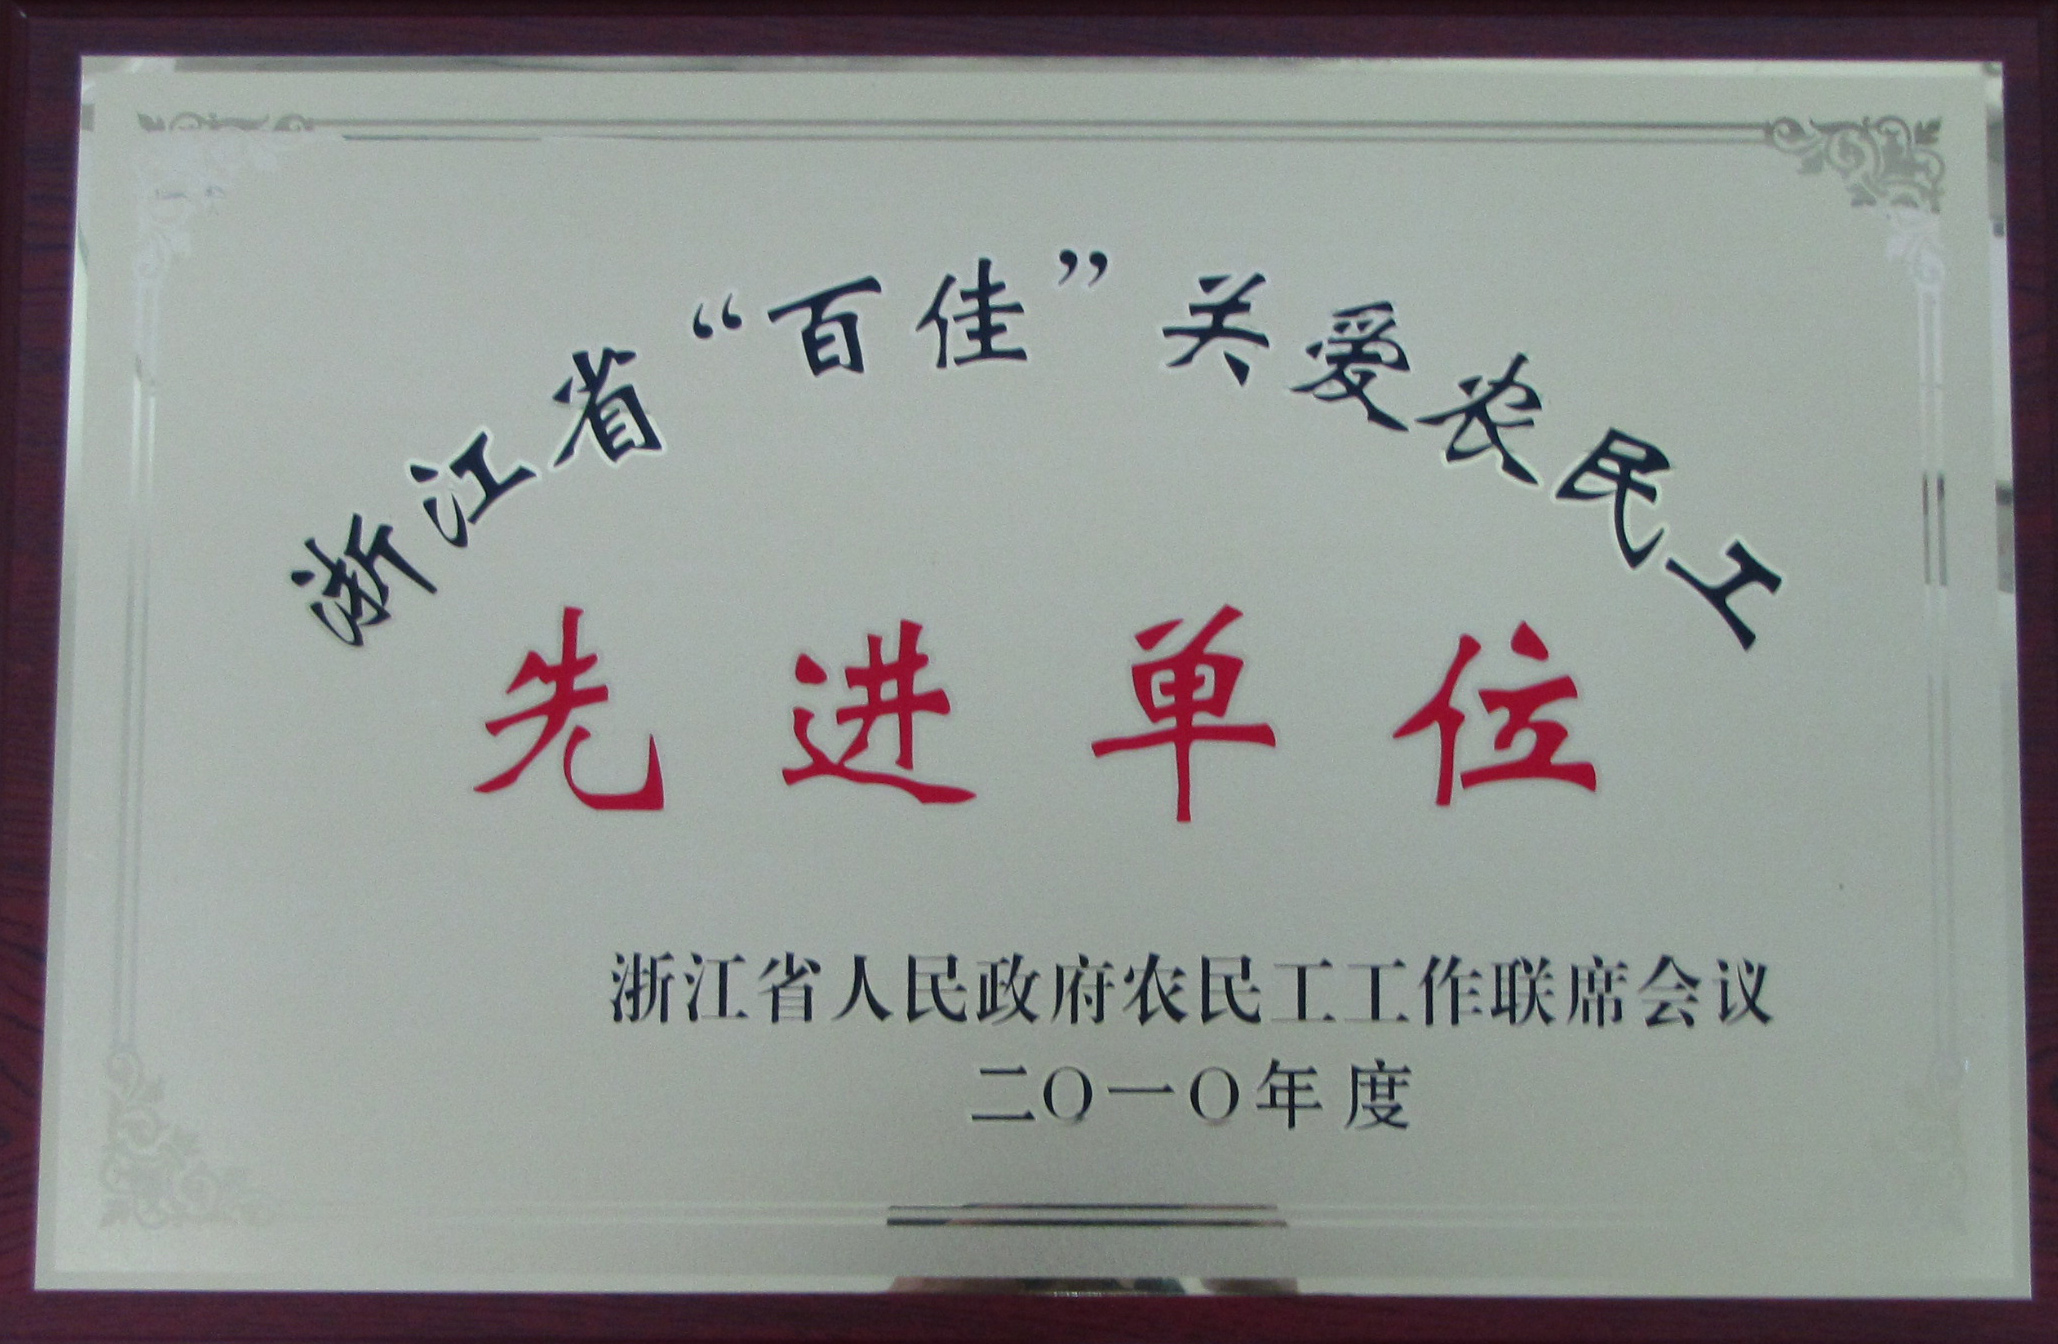 浙江省“百佳”关爱农民工
先进单位
浙江省人民政府农民工工作联席会议
二〇一〇年度